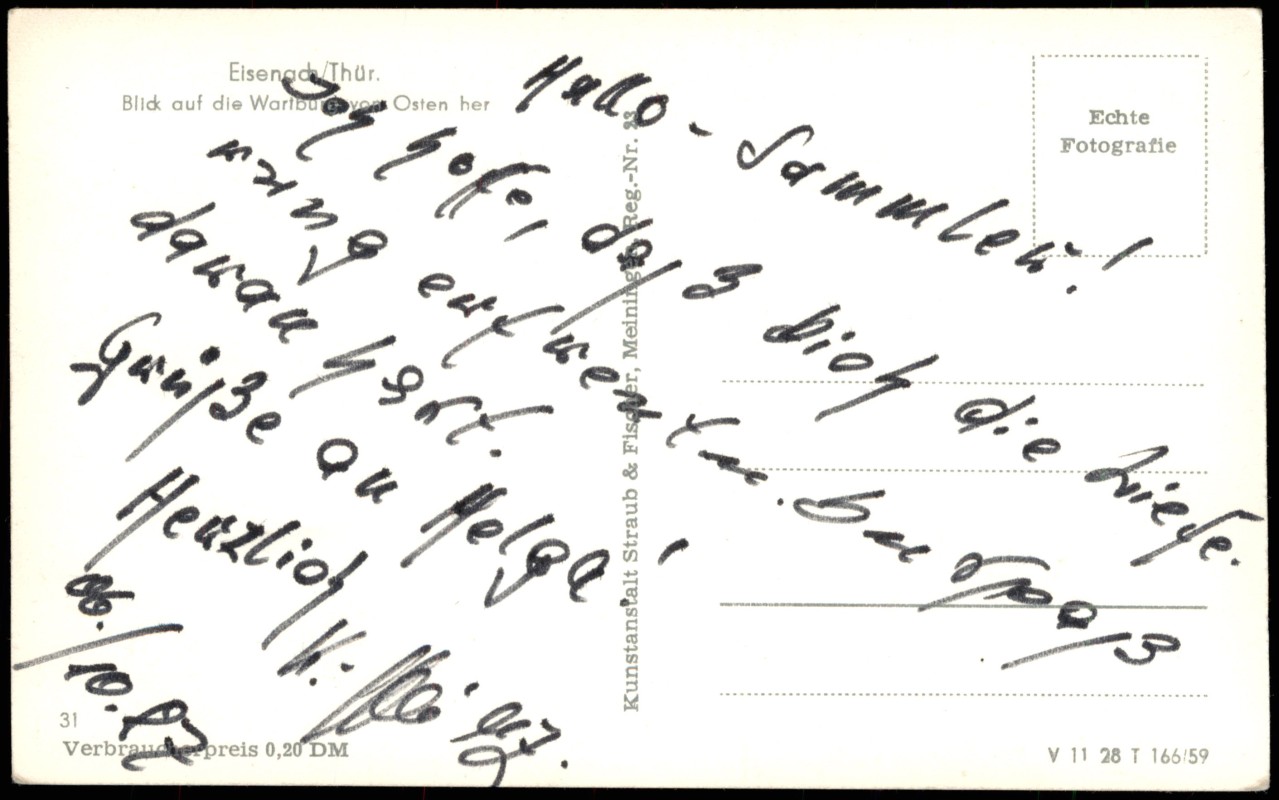 Eisenach/Thür.
Blick auf die Wartburg von Osten her
Echte
Fotografie
Hallo - Sammler!
Ich hoffe, daß Dich die Liefe-
rung erfreut u. Du Spaß
daran hast.
Grüße an Helga!
Herzlich
K.
10.87
Kunstanstalt Straub & Fischer, Meiningen Reg.-Nr. 23
31
Verbraucherpreis 0,20 DM
V 11 28 T 166/59